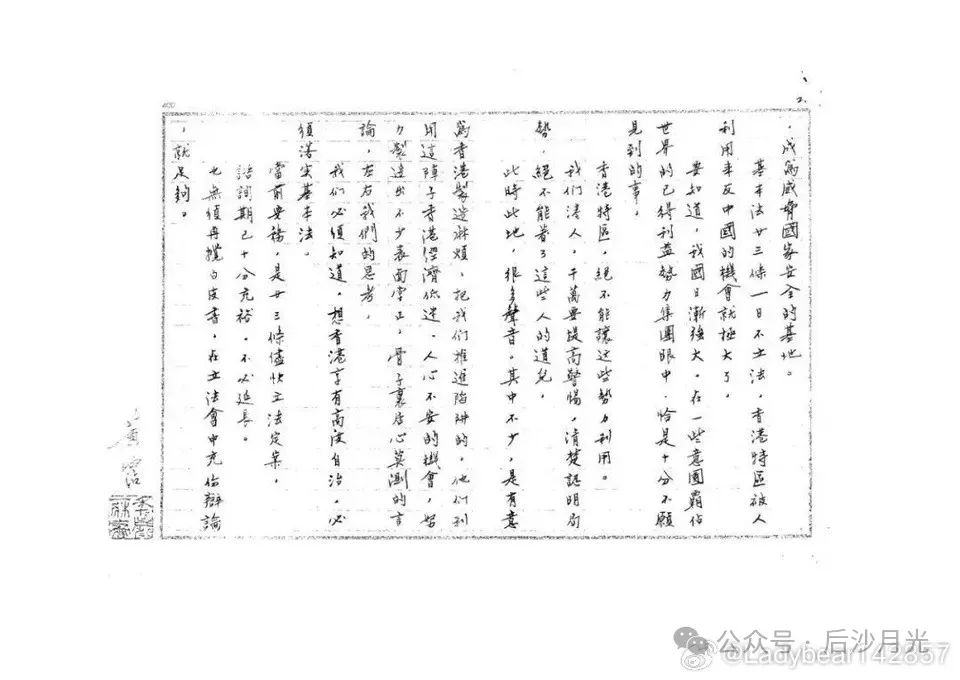 2.
，成為威脅國家安全的基地。
基本法廿三條一日不立法，香港特區被人
利用來反中國的機會就極大了，
要知道，我國日漸強大，在一些意圖霸佔
世界的已得利益勢力集團眼中，恰是十分不願
見到的事。
香港特區，絕不能讓這些勢力利用。
我们港人，千萬要提高警惕，清楚認明局
勢，絕不能着了這些人的道兒，
此時此地，很多聲音，其中不少，是有意
為香港製造麻煩，把我们推進陷阱的，他们利
用這陣子香港經濟低迷、人心不安的機會，努
力製造出不少表面堂正，骨子裏居心莫測的言
論，左右我們的思考，
我们必須知道，想香港享有高度自治，必
須落实基本法。
當前要務，是廿三條儘快立法定案，
諮詢期已十分充裕，不必延長。
也無須再攪白皮書，在立法會中充份辯論
，就足夠。
黃霑
公众号·后沙月光
@Ladybear142857